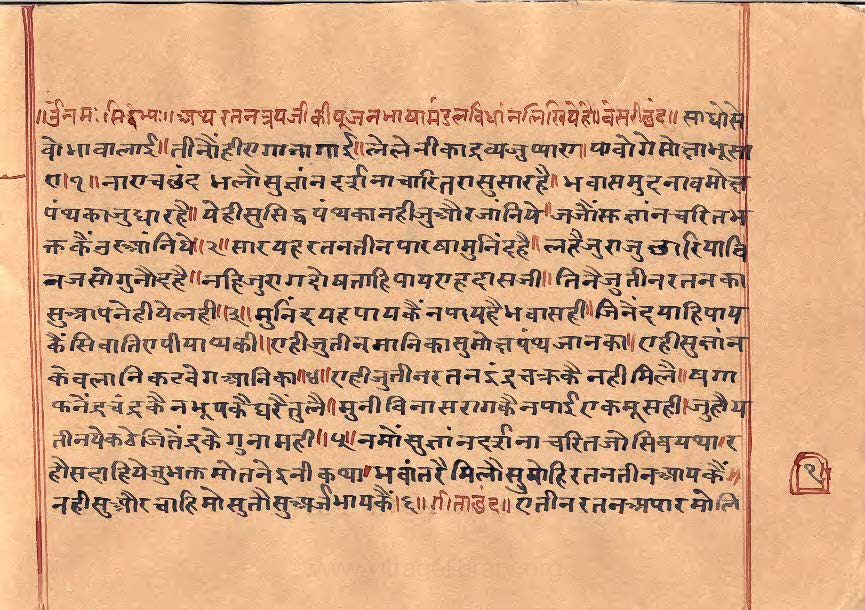 ॥ॐनमः सिद्धेभ्यः॥ अथ रतनत्रयजी की पूजन भाषा मंडल विधांन लिखियेहै॥ वेसरी छंद॥ साधोसे
वो भावालाई॥ तीनौं ही ए गाना गाई॥ लेले नीका द्रव्यजुप्पारा॥ पावोगे सोत्ताभूसा
रा।१॥ नाराच छंद भलौ सुज्ञांन दर्शना चारितरा सुसारहै॥ भवासमुद्रनाव मोक्ष
पंथ का जुधारहै॥ येही सुसिद्धपंथका नही जुऔर जानिये॥ जजौंस्क ज्ञांन चरित भ
क्त कैं आंनिये॥२॥ सार यह रतन तीन पारषा मुनिंद्रहै॥ लहै जु राजु छारिया वि
न जसो गुनौदहै॥ नहि जु राग दोष ताहि पाय एह दास जी॥ तिनै जु तीन रतन का
सु आपने ही येलही॥३॥ मुनिंद्र यह पाय कैं न पाय है भवासही॥ जिनेंद्र याहि पाय
कें सिवातिए पीयाप्यकी॥ एही जु तीन मानिका सुमोक्षपंथ जानका॥ एही सुज्ञांन
केवला निकट वेग आनिका॥४॥ एही जु तीन रतन इंद्र चक्र कै नही मिलै॥ षगा
फनेंद्र चंद्र कै न भूप कै घरैं तुलै॥ मुनी विना सराग कै न पाई ए कमू सही॥ जु हौय
तीन ये कठे जितेंद्र के गुना मही॥५॥ नमों सुज्ञांन दर्शना चरित जो सिवयथा॥र
हौ सदा हिये जु भक्त मो तने इनी कथा॥ भवांतरै मिलौ सुमोहि रतन तीन आयकैं॥
नही सु और चाहि मो सुतौ सु अर्ज भायकैं॥६॥ गीता छंद॥ ऐ तीन रतन अपार मोलि
१
www.vitragelibrary.org